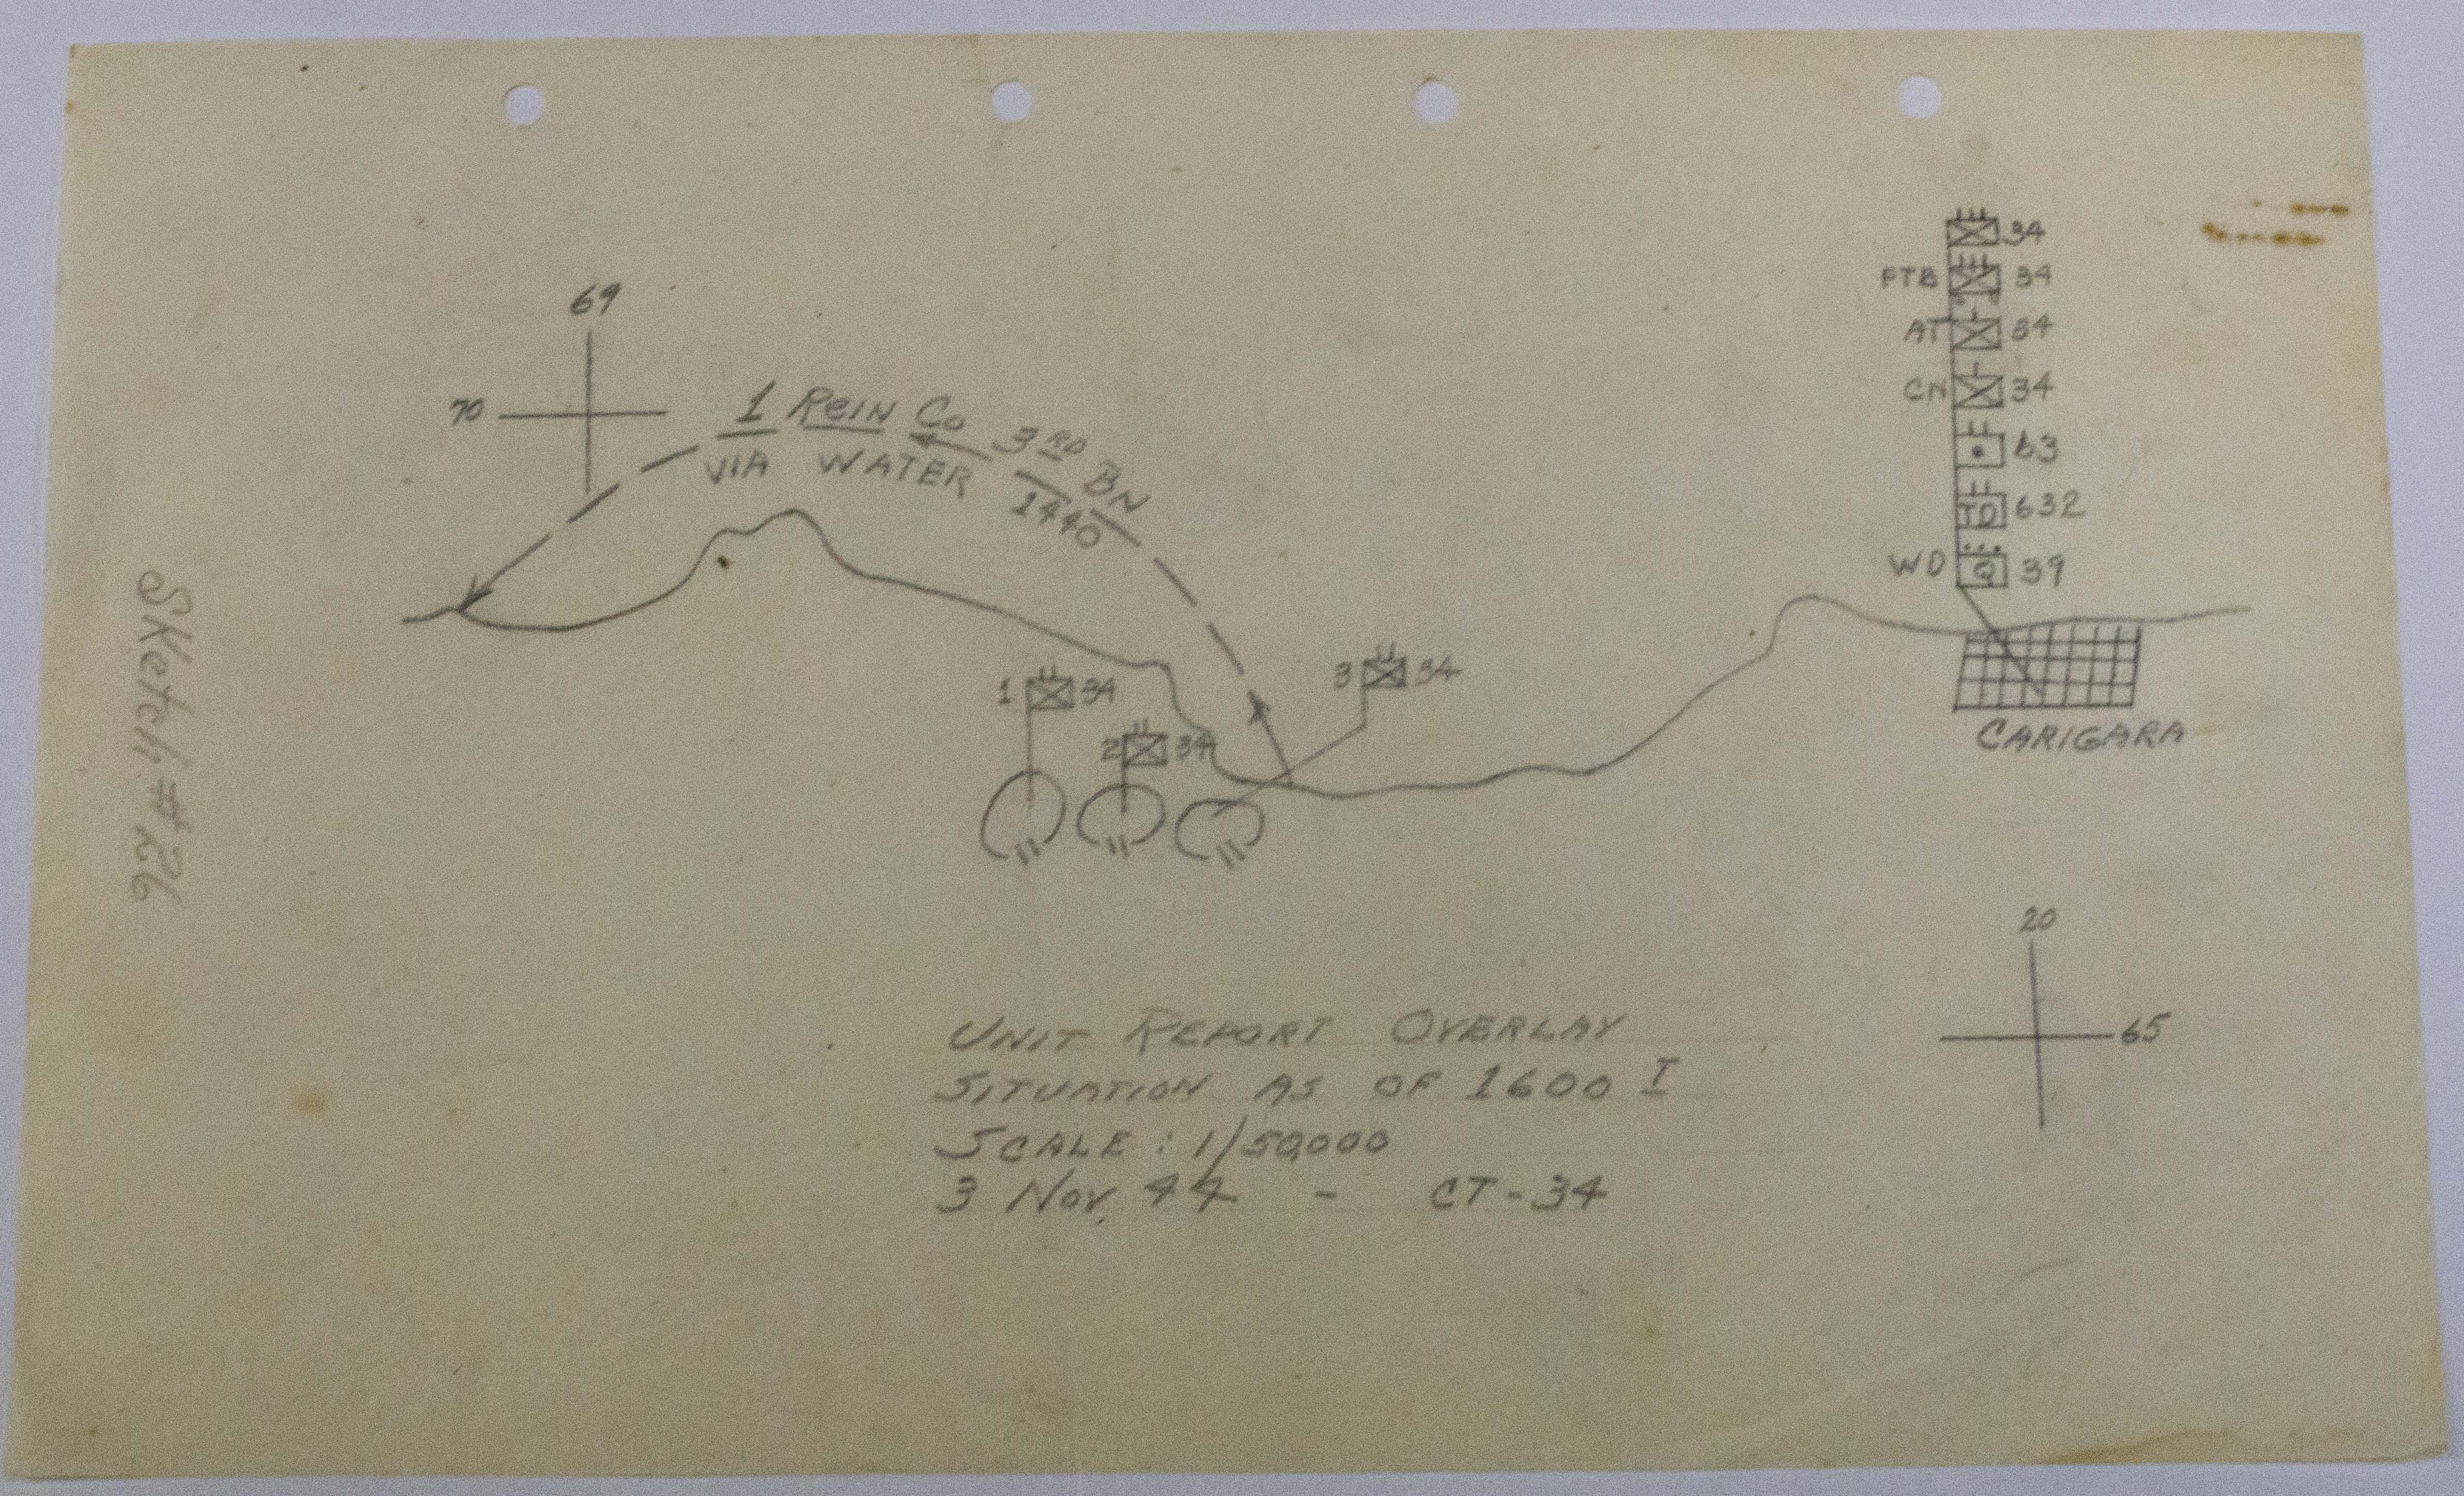 34
FTB 34
AT 34
CN 34
63
TD 632
WD Q 39
CARIGARA
69
70
1 REIN CO 3RD BN
VIA WATER 1440
1 34
2 34
3 34
20
65
UNIT REPORT OVERLAY
SITUATION AS OF 1600 I
SCALE : 1/50,000
3 NOV. 44 - CT-34
Sketch #26